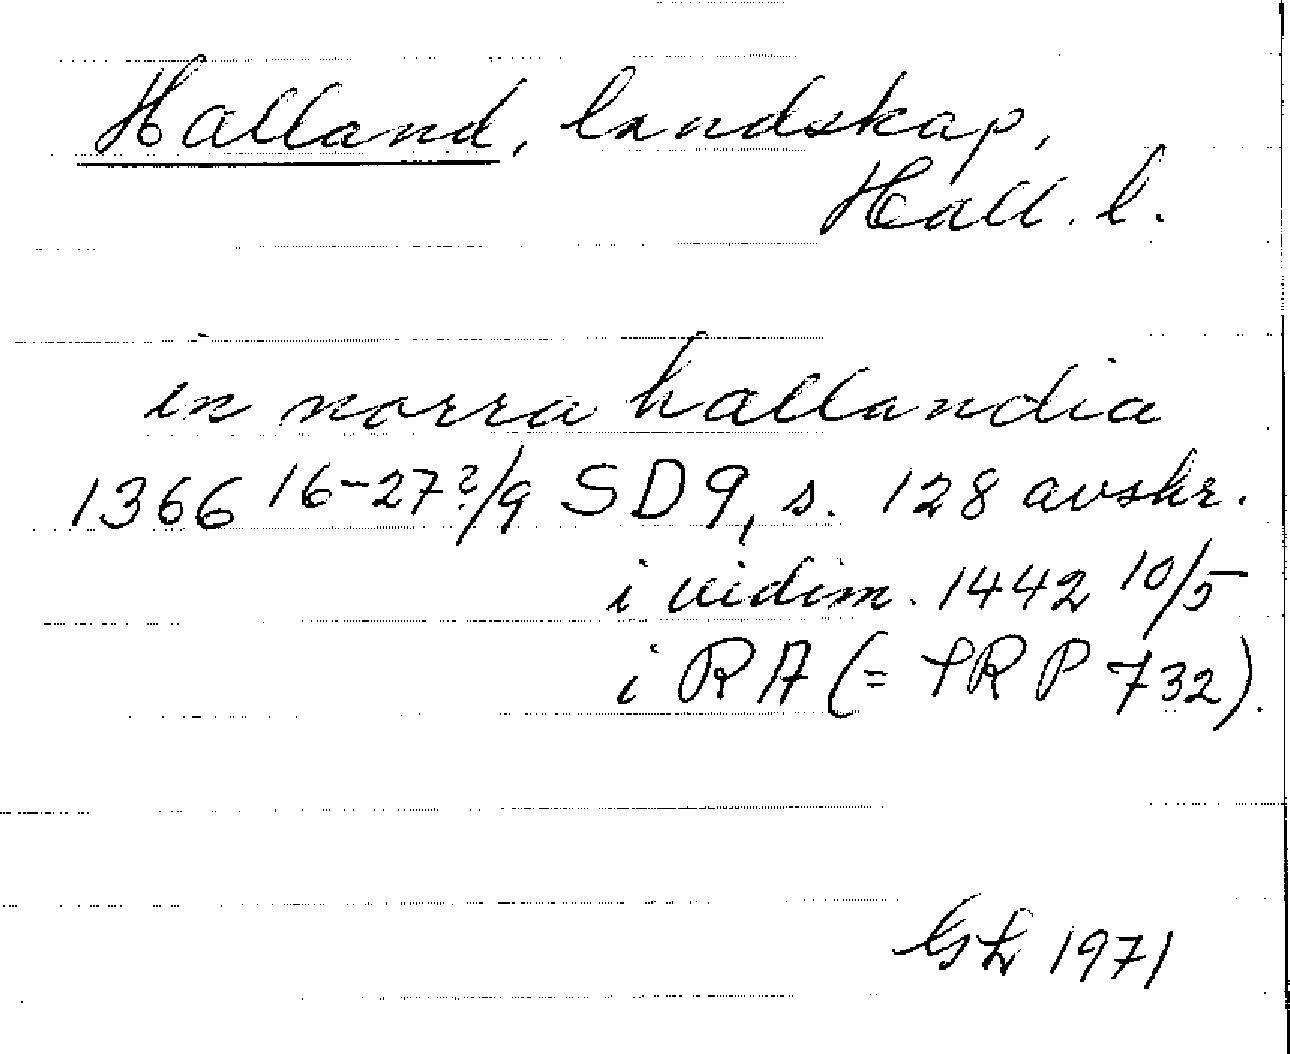 Halland, landskap,
Hall. l.
in norra hallandia
1366 16-27?/9 SD 9, s. 128 avskr.
i vidim. 1442 10/5
i RA (= †RP 732).
1971